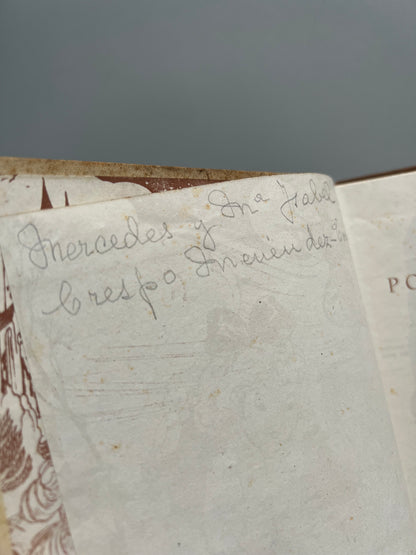 Mercedes y Mª Isabel
Crespo Menéndez
PO